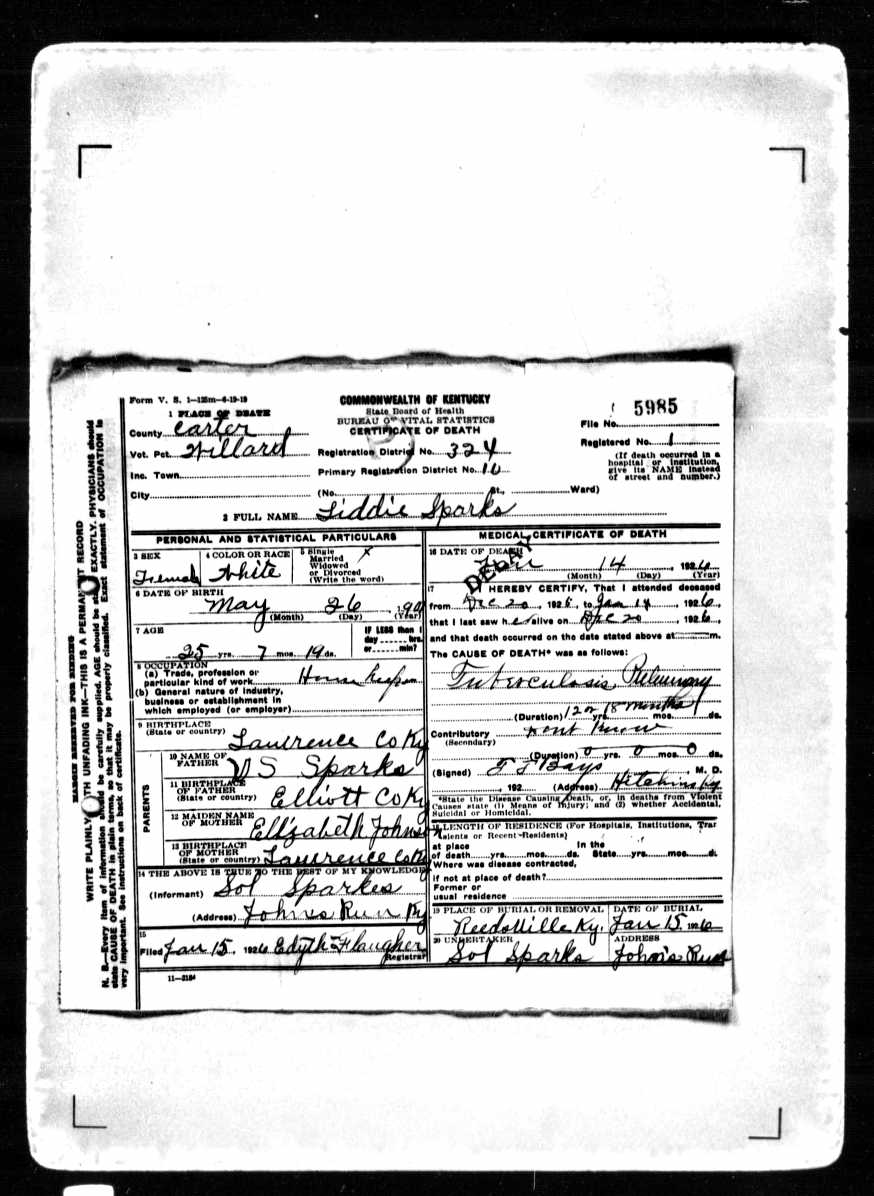 Form V. S. 1—125m—6-19-19
COMMONWEALTH OF KENTUCKY
State Board of Health
BUREAU OF VITAL STATISTICS
CERTIFICATE OF DEATH
1 PLACE OF DEATH
County Carter
Vot. Pct. Willard
Inc. Town
City
Registration District No. 324
Primary Registration District No. 10
(No. St. Ward)
File No. 5985
Registered No. 1
(If death occurred in a
hospital or institution,
give its NAME instead
of street and number.)
2 FULL NAME Liddie Sparks
PERSONAL AND STATISTICAL PARTICULARS
3 SEX
Female
4 COLOR OR RACE
White
5 Single
Married
Widowed
or Divorced
(Write the word)
X
6 DATE OF BIRTH
May 26, 190
(Month) (Day) (Year)
7 AGE
25 yrs. 7 mos. 19 ds.
IF LESS than 1
day hrs.
or min?
8 OCCUPATION
(a) Trade, profession or
particular kind of work
(b) General nature of industry,
business or establishment in
which employed (or employer)
9 BIRTHPLACE
(State or country) Lawrence Co Ky
PARENTS
10 NAME OF
FATHER W S Sparks
11 BIRTHPLACE
OF FATHER
(State or country) Elliott Co Ky
12 MAIDEN NAME
OF MOTHER Ellizabeth Johnson
13 BIRTHPLACE
OF MOTHER
(State or country) Lawrence Co Ky
14 THE ABOVE IS TRUE TO THE BEST OF MY KNOWLEDGE
(Informant) Sol Sparkes
(Address) Johns Run Ky
15
Filed Jan 15, 1926 Edyth Flaugher
Registrar
11—3184
MEDICAL CERTIFICATE OF DEATH
16 DATE OF DEATH
DELAY
Jan 14, 1926
(Month) (Day) (Year)
17 I HEREBY CERTIFY, That I attended deceased
from Dec 20, 192 , to Jan 14 1926,
that I last saw her alive on Dec 20 1926,
and that death occurred on the date stated above at m.
The CAUSE OF DEATH* was as follows:
Tuberculosis, Pulmonary
(Duration) 12 or 18 months yrs. mos. ds.
Contributory Dont Know
(Secondary)
(Duration) 0 yrs. 0 mos. 0 ds.
(Signed) Bays, M. D.
, 192 (Address) Hitchins Ky
*State the Disease Causing Death, or, in deaths from Violent
Causes state (1) Means of Injury; and (2) whether Accidental,
Suicidal or Homicidal.
18 LENGTH OF RESIDENCE (For Hospitals, Institutions, Tran
sients or Recent Residents)
at place In the
of death yrs. mos. ds. State yrs. mos. d.
Where was disease contracted,
if not at place of death?
Former or
usual residence
19 PLACE OF BURIAL OR REMOVAL
Reedsville Ky.
DATE OF BURIAL
Jan 15, 1926
20 UNDERTAKER
Sol Sparks
ADDRESS
Johns Run
MARGIN RESERVED FOR BINDING
WRITE PLAINLY WITH UNFADING INK—THIS IS A PERMANENT RECORD
N. B.—Every item of information should be carefully supplied. AGE should be stated EXACTLY. PHYSICIANS should
state CAUSE OF DEATH in plain terms, so that it may be properly classified. Exact statement of OCCUPATION is
very important. See instructions on back of certificate.